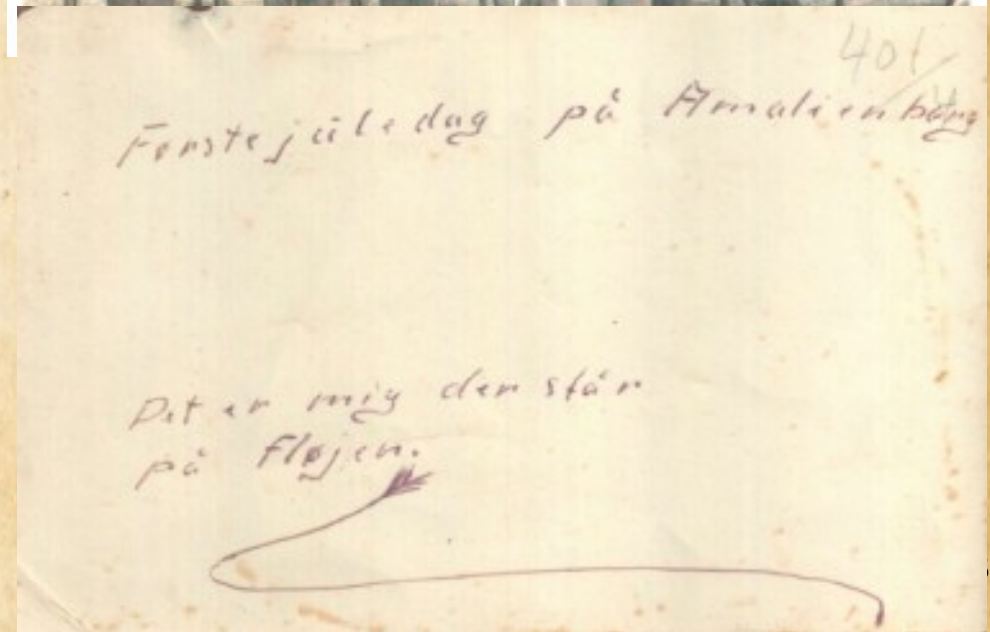 401
Førstejúledag på Amalienbørg
Det er mig der står
på Fløjen.